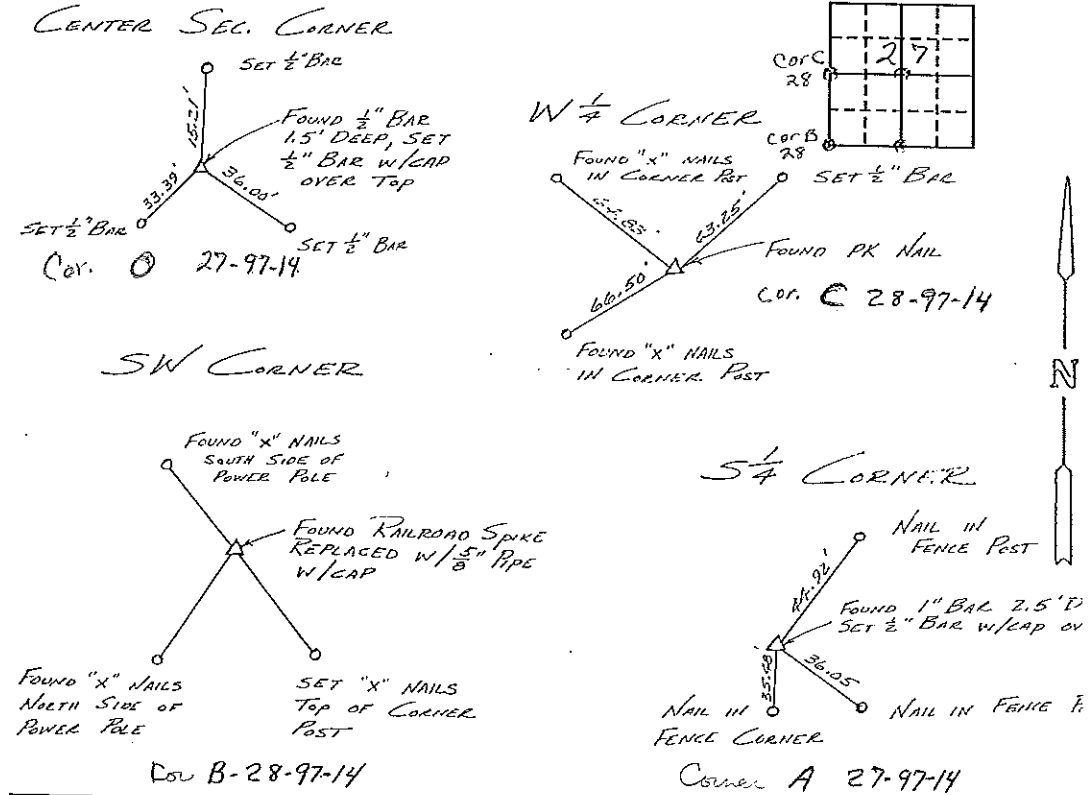 CENTER SEC. CORNER
SET 1/2" BAR
15.21'
FOUND 1/2" BAR
1.5' DEEP, SET
1/2" BAR W/CAP
OVER TOP
33.39'
36.00'
SET 1/2" BAR
SET 1/2" BAR
Cor. O 27-97-14
27
Cor C
28
Cor B
28
W 1/4 CORNER
FOUND "X" NAILS
IN CORNER POST
SET 1/2" BAR
63.25'
FOUND PK NAIL
66.50'
Cor. C 28-97-14
FOUND "X" NAILS
IN CORNER POST
N
SW CORNER
FOUND "X" NAILS
SOUTH SIDE OF
POWER POLE
FOUND RAILROAD SPIKE
REPLACED W/ 5/8" PIPE
W/CAP
FOUND "X" NAILS
NORTH SIDE OF
POWER POLE
SET "X" NAILS
TOP OF CORNER
POST
Cor B-28-97-14
S 1/4 CORNER
NAIL IN
FENCE POST
FOUND 1" BAR 2.5'
SET 1/2" BAR W/CAP
35.48
36.05
NAIL IN
FENCE CORNER
NAIL IN FENCE
Corner A 27-97-14